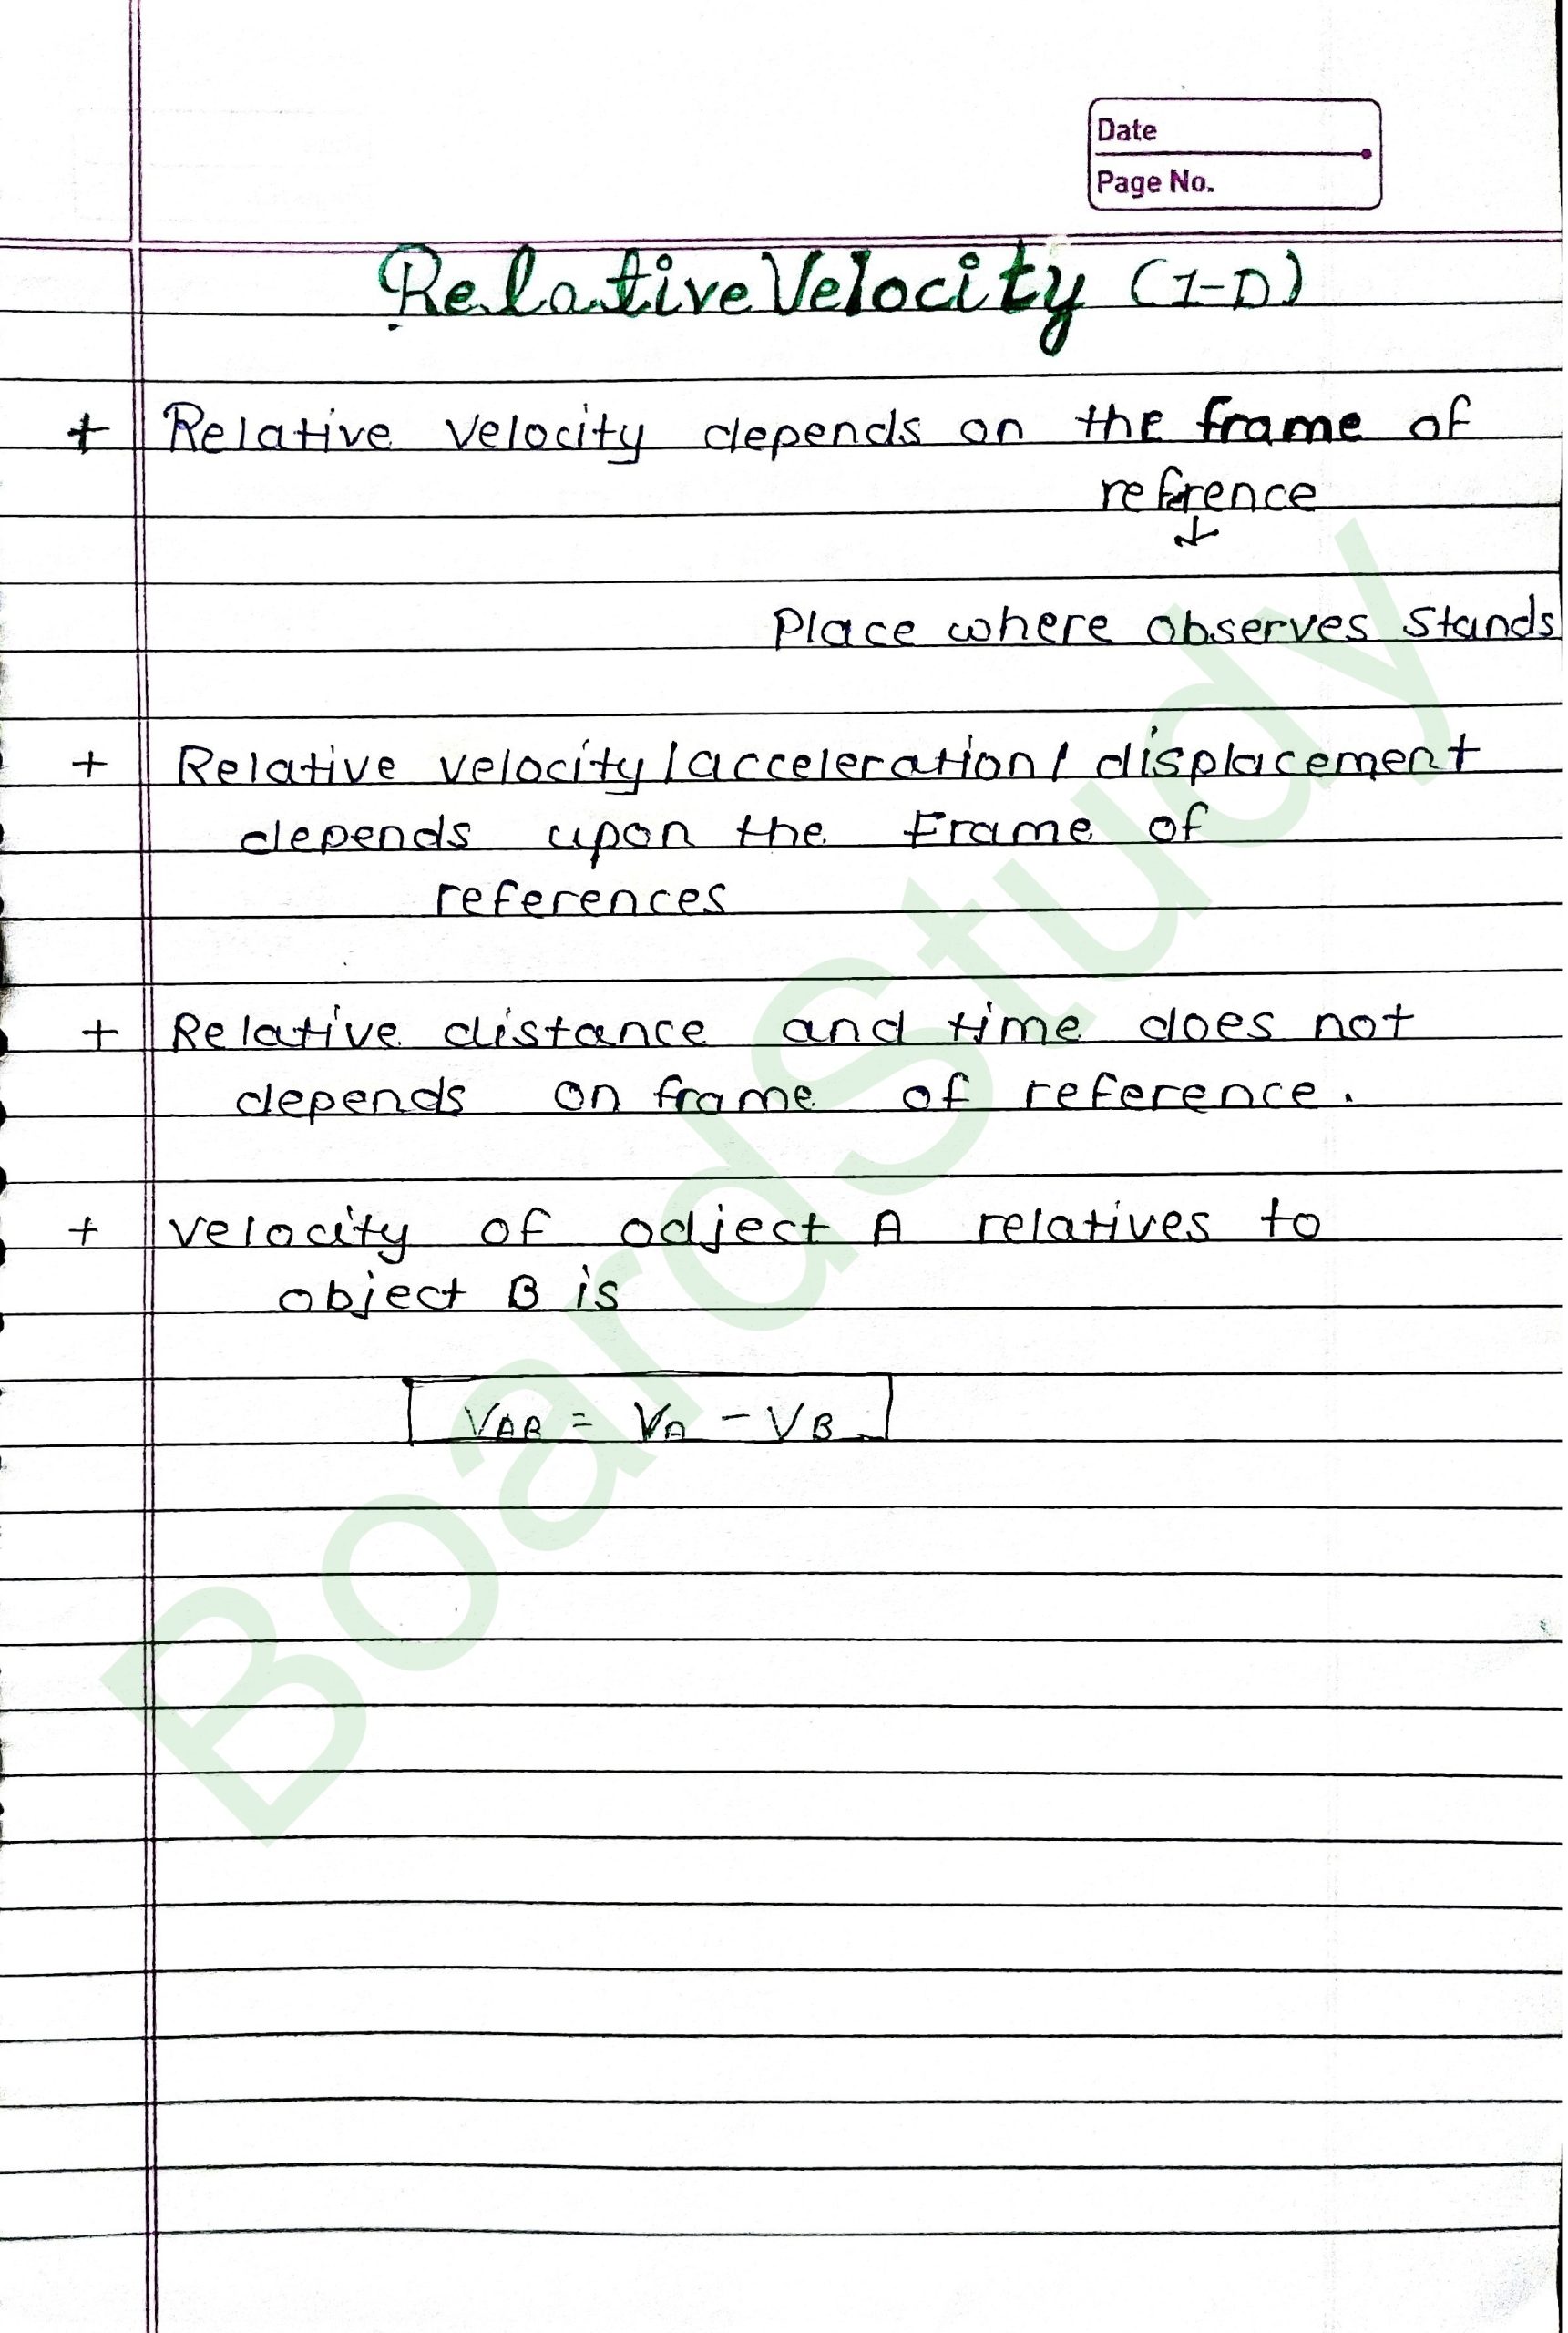 Date
Page No.
Relative Velocity (1-D)
+ Relative velocity depends on the frame of
refrence
↓
Place where observes stands
+ Relative velocity/acceleration/displacement
depends upon the Frame of
references
+ Relative distance and time does not
depends on frame of reference.
+ velocity of odject A relatives to
object B is
VAB = VA - VB
BoardStudy